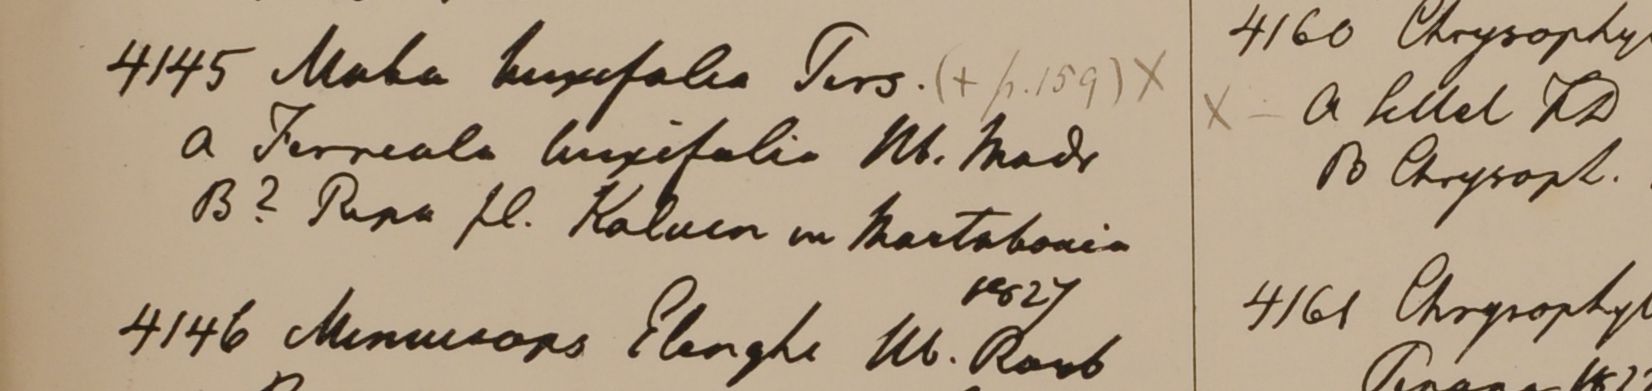 4145 Maba buxifolia Pers. (+ p.159) X
a Ferreola buxifolia Hb. Madr
B? Ripa fl. Saluen in Martabania
1827
4146 Mimusops Elenghi Hb. Roxb
4160 Chrysophy
X – a
B Chrysoph.
4161 Chrysophyl